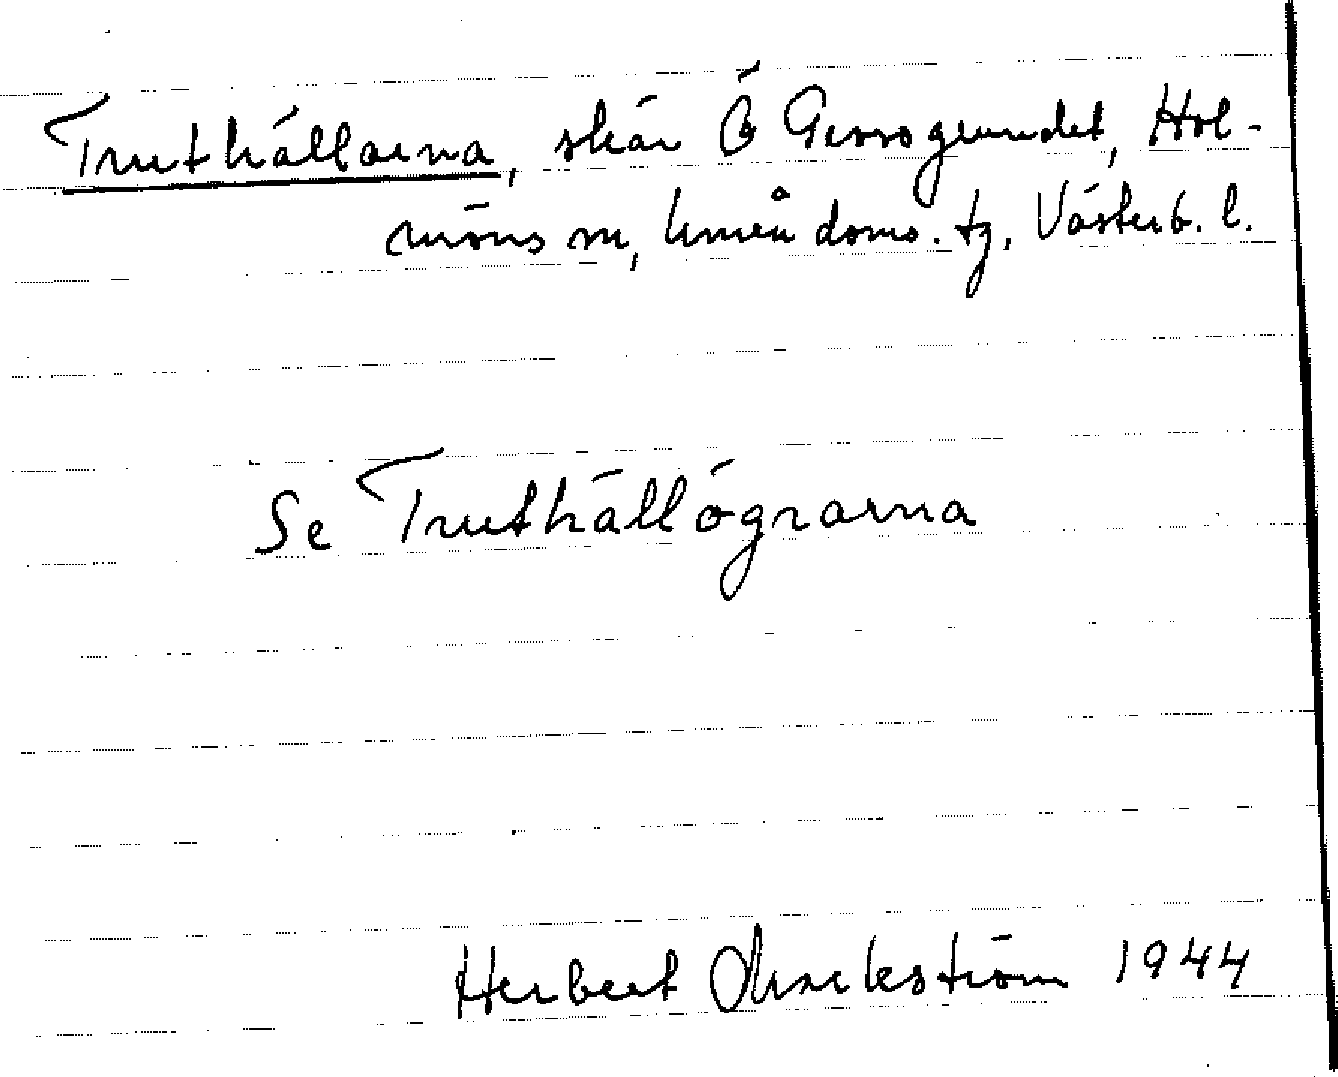 Truthällarna, skär Ö Gersgrundet, Hol-
möns sn, Umeå doms. tg, Västerb. l.
Se Truthällögrarna
Herbert 1944